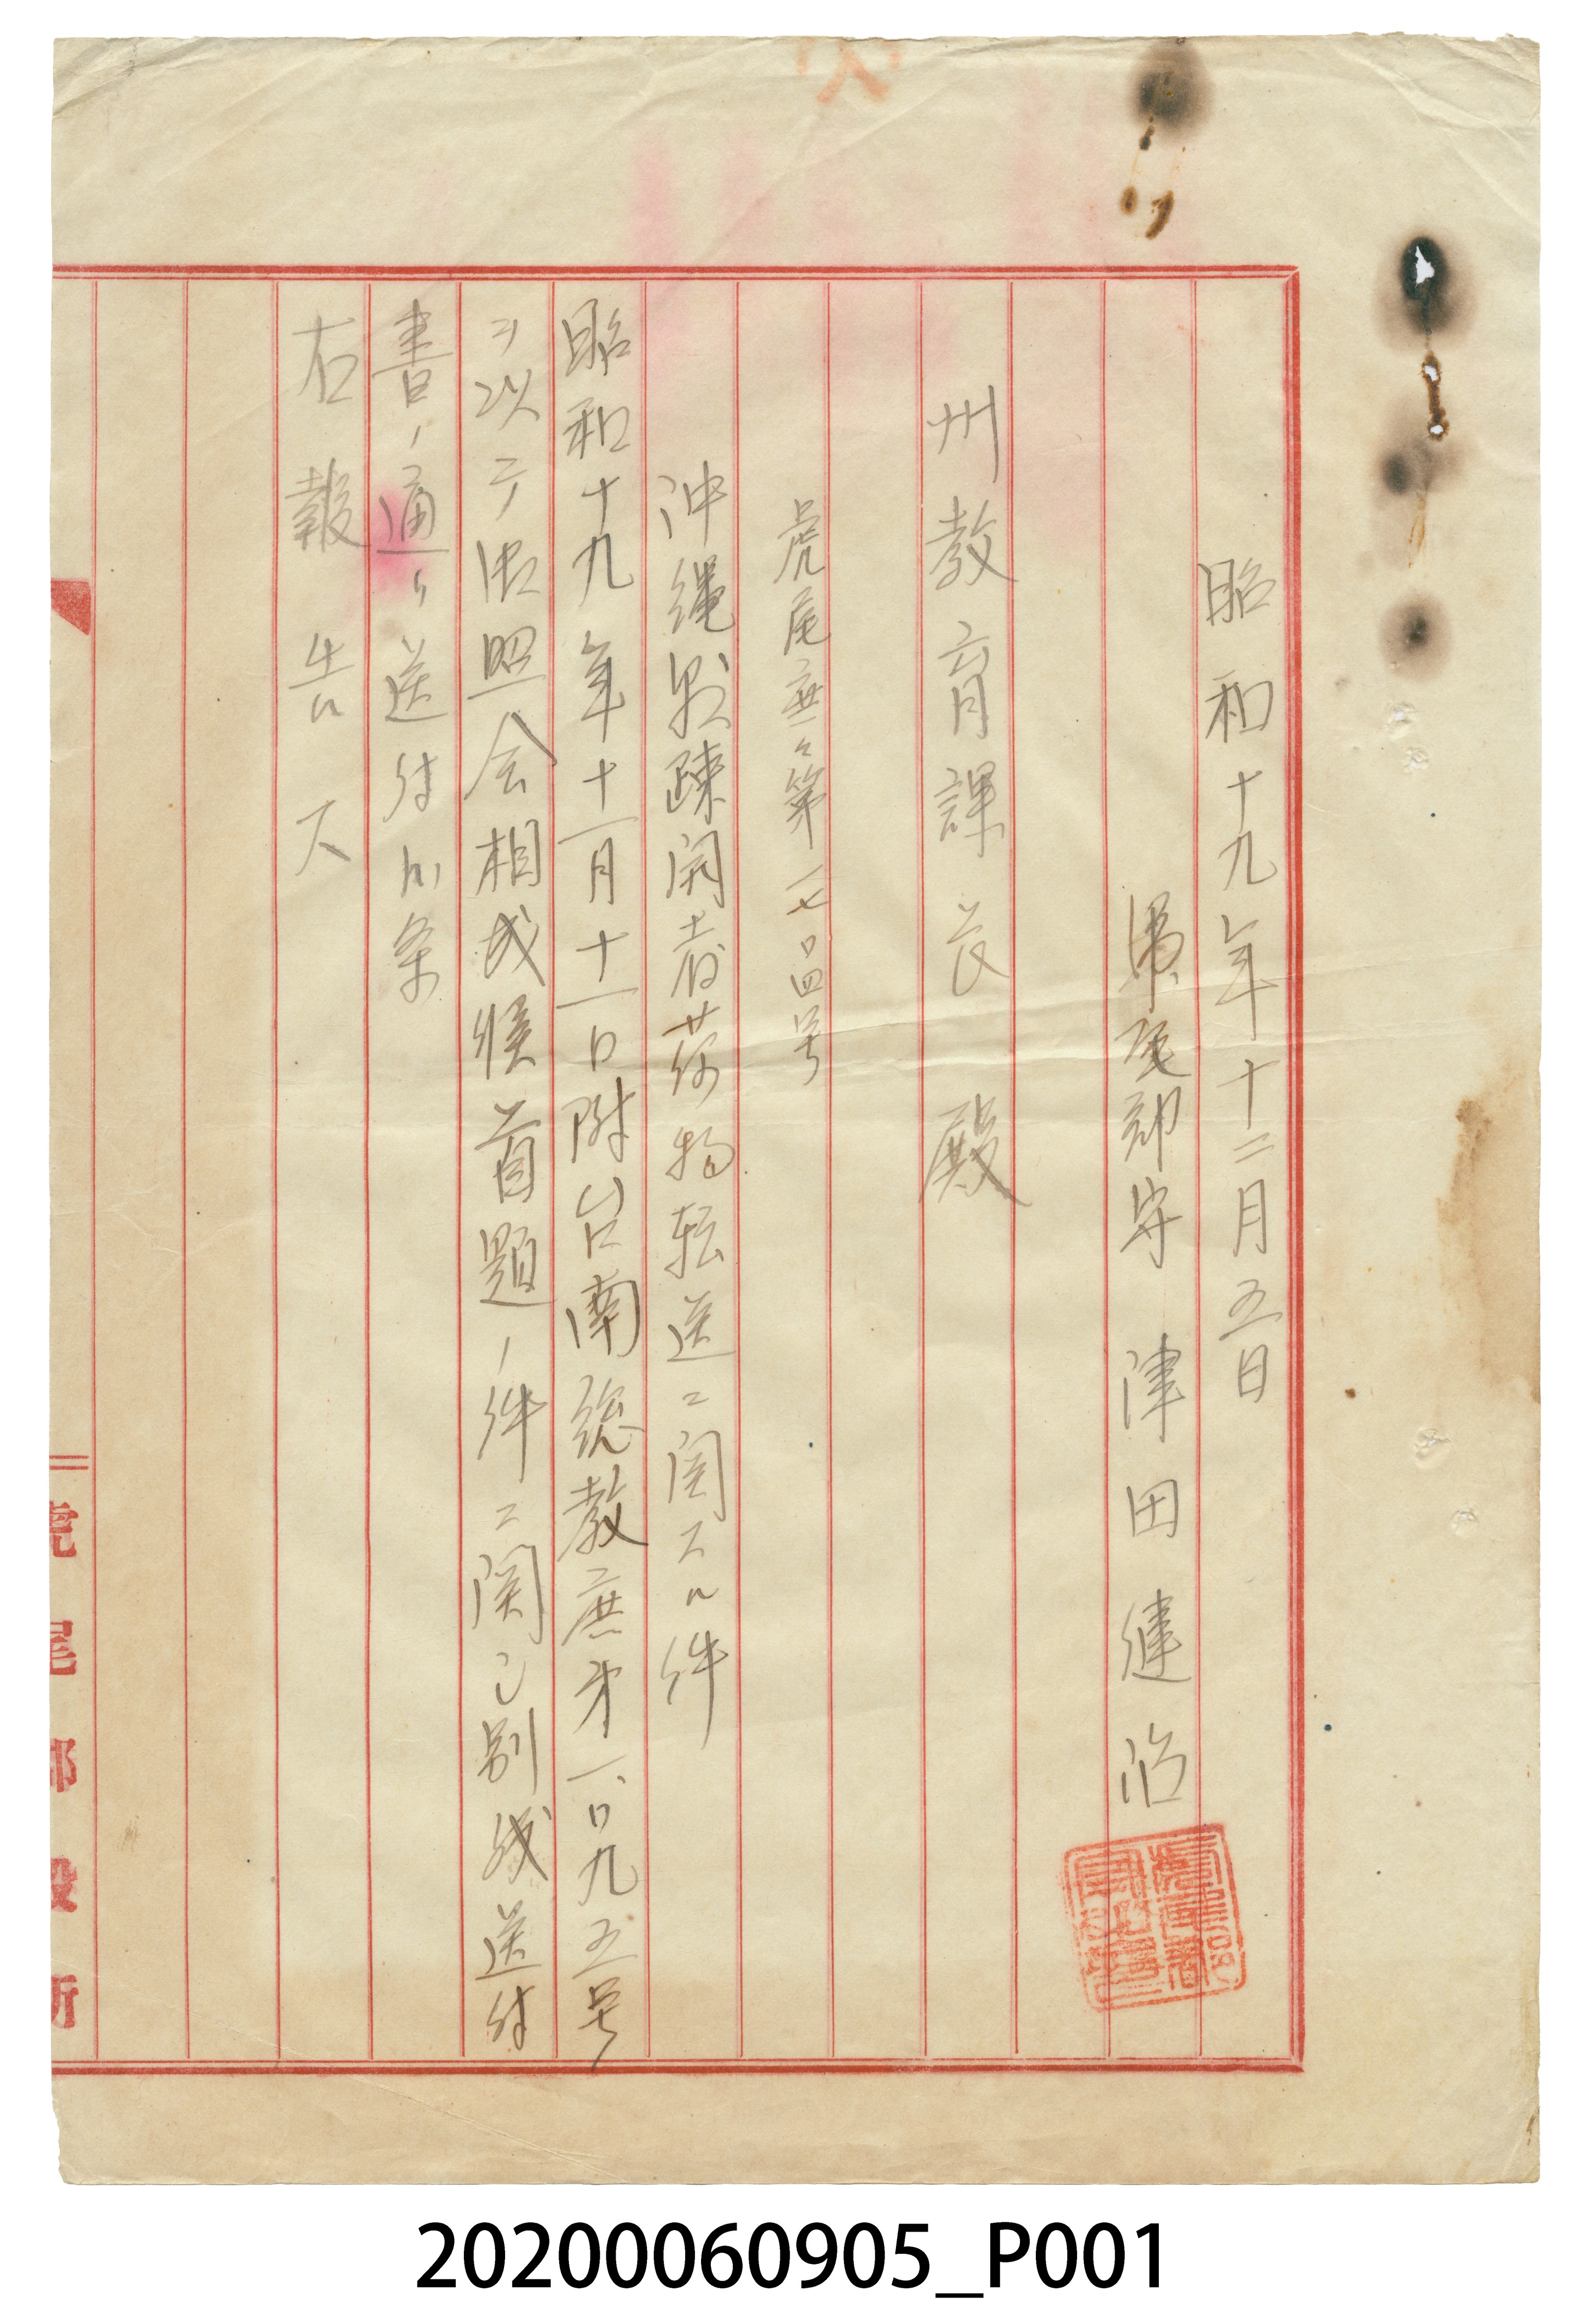 昭和十九年十二月五日
虎尾郡守 津田健治
州教育課長殿
虎尾庶第一七〇四号
沖縄縣疎開者荷物転送ニ関スル件
昭和十九年十一月十一日附台南総教庶第一、〇九五号
ヲ以テ御照会相成候首題ノ件ニ関シ別紙送付
書ノ通リ送付候条
右報告ス
虎尾郡役所
20200060905_P001